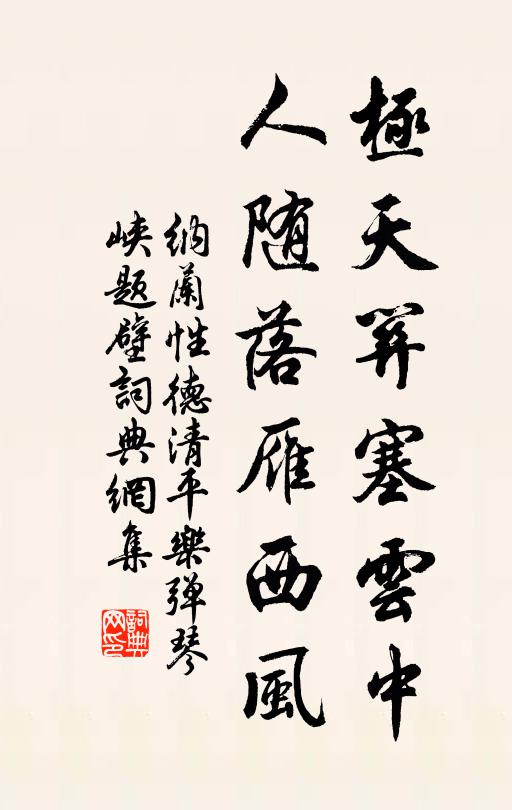 極天關塞雲中
人随落雁西風
納蘭性德清平樂弹琴
峡題壁詞典網集
詞典
网印